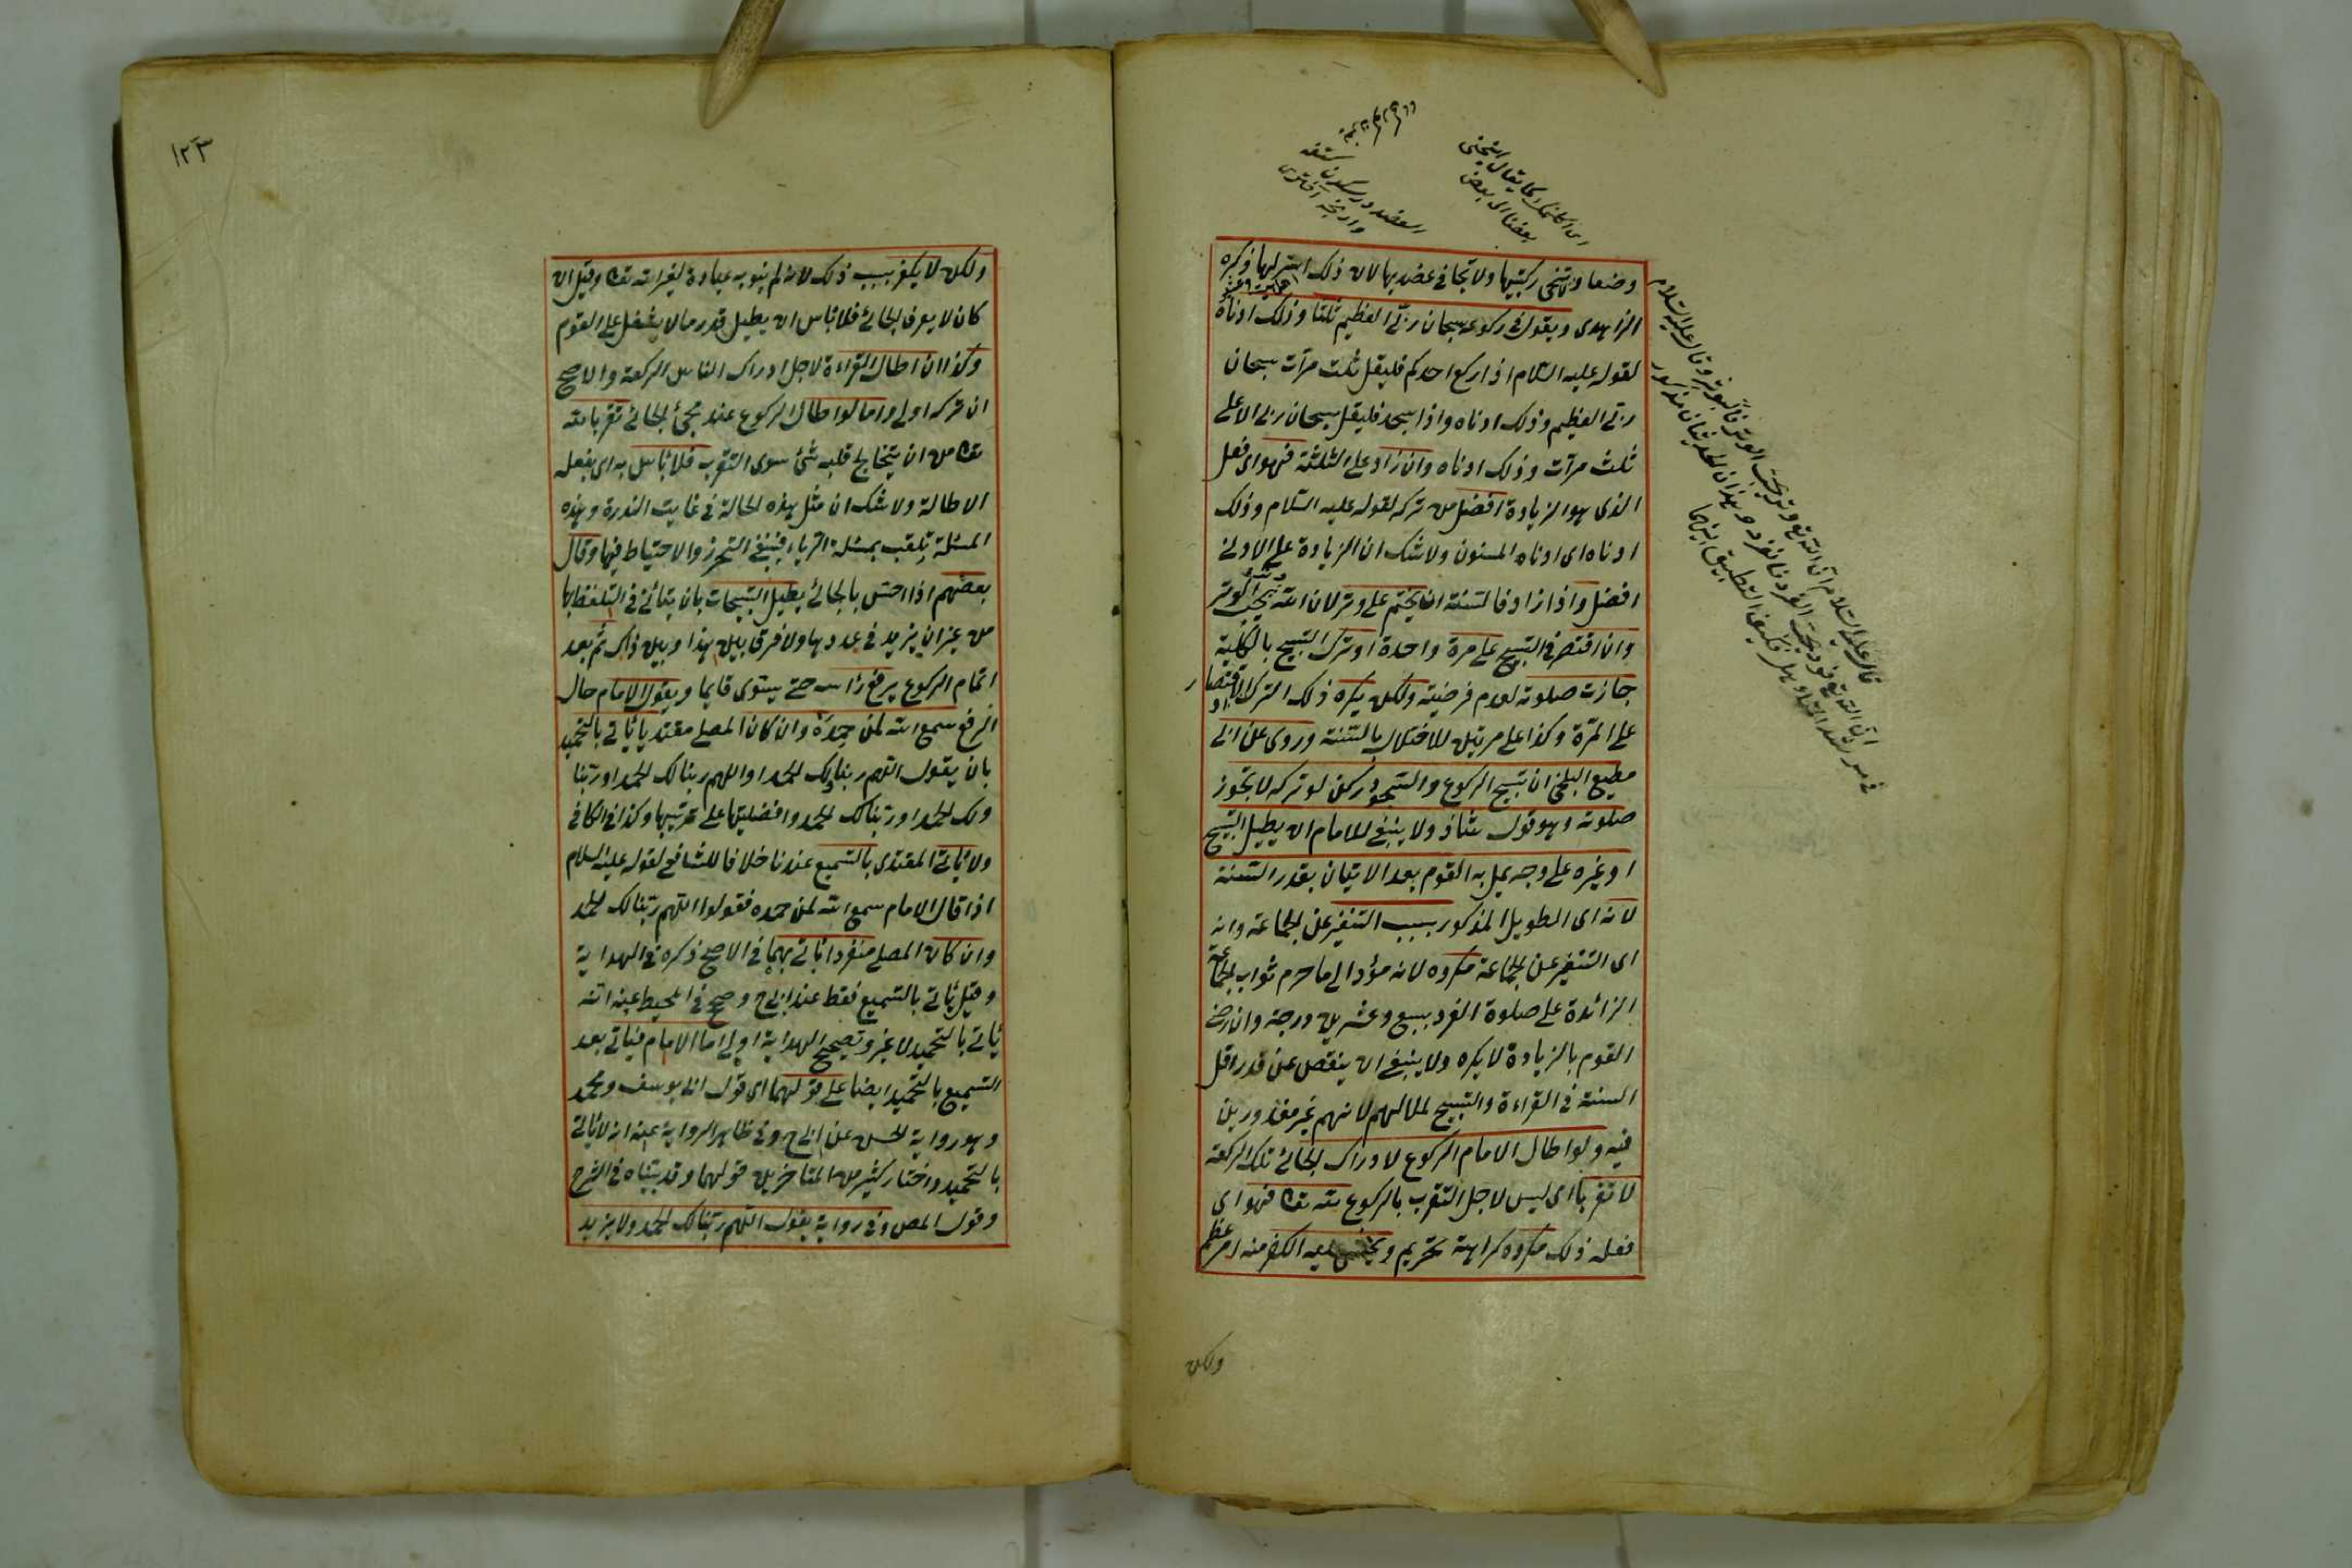 وضعا ولا تنحنى ركبتيها ولا تجافى عضديها لان ذلك استر لها ذكره
الزاهدى ويقول فى ركوعه سبحان ربى العظيم ثلثا وذلك ادناه
لقوله عليه السلام اذا ركع احدكم فليقل ثلث مرات سبحان
ربى العظيم وذلك ادناه واذا سجد فليقل سبحان ربى الاعلى
ثلث مرآت وذلك ادناه وان زاد على الثلثة فهو اى فعل
الذى هو الزيادة افضل من تركه لقوله عليه السلام وذلك
ادناه اى ادناه المسنون ولا شك ان الزيادة على الادنى
افضل واذا زاد فالسنة ان يختم على وتر لان الله يحب الوتر
وان اقتصر فى التسبيح على مرة واحدة او ترك التسبيح بالكلية
جازت صلوته لعدم فرضيته ولكن يكره ذلك الترك او الاقتصار
على المرة وكذا على مرتين للاختلال بالسنة وروى عن ابى
مطيع البلخى ان تسبيح الركوع والسجود ركن لو تركه لا تجوز
صلوته وهو قول شاذ ولا ينبغى للامام ان يطيل التسبيح
او غيره على وجه يمل به القوم بعد الاتيان بقدر السنة
لانه اى الطويل المذكور بسبب التنفير عن الجماعة وانه
اى التنفير عن الجماعة مكروه لانه مؤد الى ما حرم ثواب الجماعة
الزائدة على صلوة الفرد بسبع وعشرين درجة وان رضى
القوم بالزيادة لا يكره ولا ينبغى ان ينقص عن قدر اقل
السنة فى القراءة والتسبيح لملالهم لانهم غير معذورين
فيه ولو اطال الامام الركوع لادراك الجائى تلك الركعة
لا تقربا اى ليس لاجل التقرب بالركوع لله تعا فهو اى
فعله ذلك مكروه كراهة تحريم ويخشى عليه الكفر منه امر عظيم
ولكن
اى اكلمك كما يقال استحيى
بعضنا الى بعض
العضد در
قال عليه السلام ان الله تع وتر يحب الوتر فاوتروا وقال عليه السلام
ان الله تع فرد يحب الفرد وهذان الحديثان مذكور
١٢٣
ولكن لا يكفر بسبب ذلك لانه لم ينو به عبادة لغير الله تعا وقيل ان
كان لا يعرف الجائى فلا باس ان يطيل قدر ما لا يثقل على القوم
وكذا ان اطال القراءة لاجل ادراك الناس الركعة والاصح
ان تركه اولى واما لو اطال الركوع عند مجئ الجائى تقربا لله
تعا من ان يتخالج قلبه شئ سوى التقرب فلا باس به اى بفعله
الاطالة ولا شك ان مثل هذه الحالة فى غايت الندرة وهذه
المسئلة تلقب بمسئلة الرياء فينبغى التحرز والاحتياط فيها وقال
بعضهم اذا احس بالجائى يطيل التسبيحات بان يتانى فى التلفظ بها
من غير ان يزيد فى عددها ولا فرق بين هذا وبين ذاك ثم بعد
اتمام الركوع يرفع راسه حتى يستوى قايما ويقول الامام حال
الرفع سمع الله لمن حمده وان كان المصلى مقتديا ياتى بالتحميد
بان يقول اللهم ربنا ولك الحمد او اللهم ربنا لك الحمد او ربنا
ولك الحمد او ربنا لك الحمد وافضليتها على ترتيبها وكذا فى الكافى
ولا ياتى المقتدى بالتسميع عندنا خلافا للشافعى لقوله عليه السلام
اذا قال الامام سمع الله لمن حمده فقولوا اللهم ربنا لك الحمد
وان كان المصلى منفردا ياتى بهما فى الاصح ذكره فى الهداية
وقيل ياتى بالتسميع فقط عند ابى ح وصحح فى المحيط عنه انه
ياتى بالتحميد لا غير وتصحيح الهداية اولى اما الامام فياتى بعد
التسميع بالتحميد ايضا على قولهما اى قول ابى يوسف ومحمد
وهو رواية الحسن عن ابى ح وفى ظاهر الرواية عنه انه لا ياتى
بالتحميد واختار كثير من المتاخرين قولهما وقد بيناه فى الشرح
وقول المص وفى رواية يقول اللهم ربنا لك الحمد ولا يزيد